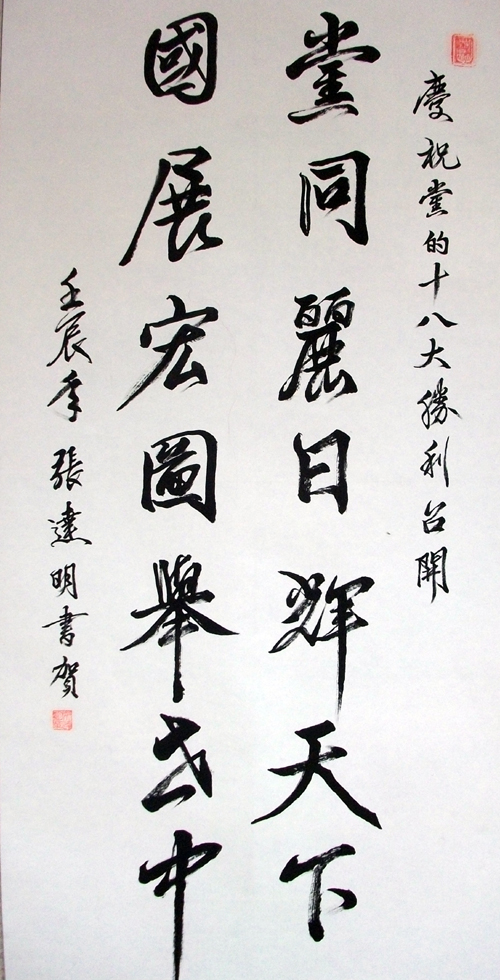 慶祝黨的十八大勝利召開
黨同麗日輝天下
國展宏圖舉世中
壬辰年 張達明書賀